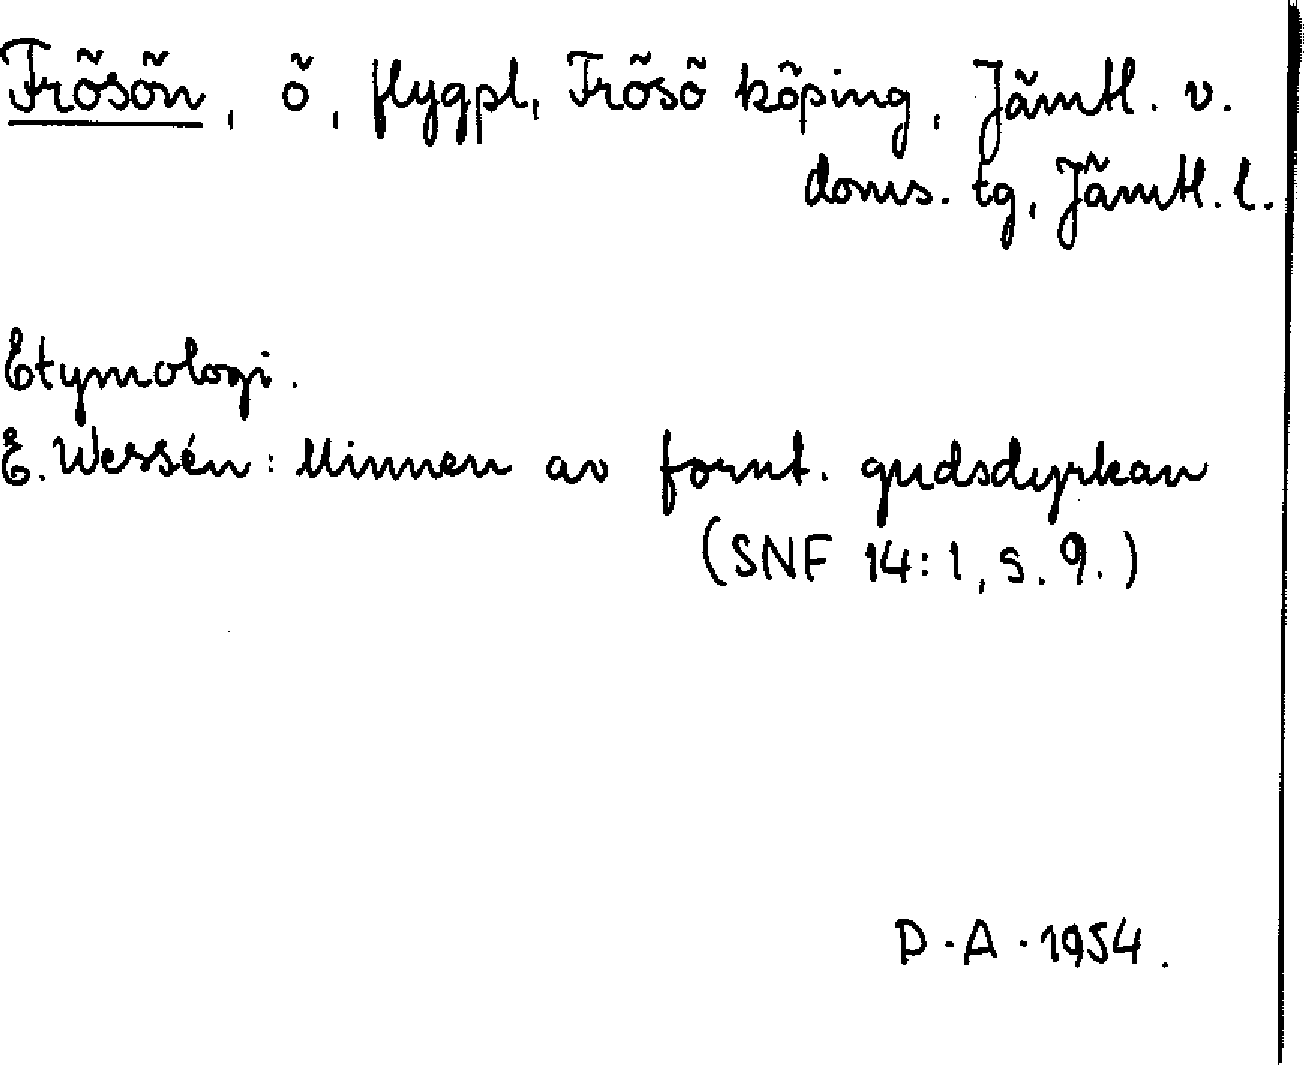 Frösön, ö, flygpl, Frösö köping, Jämtl. v.
doms. tg, Jämtl. l.
Etymologi.
E. Wessén: Minnen av fornt. gudsdyrkan
(SNF 14:1, s. 9.)
D. A. 1954.